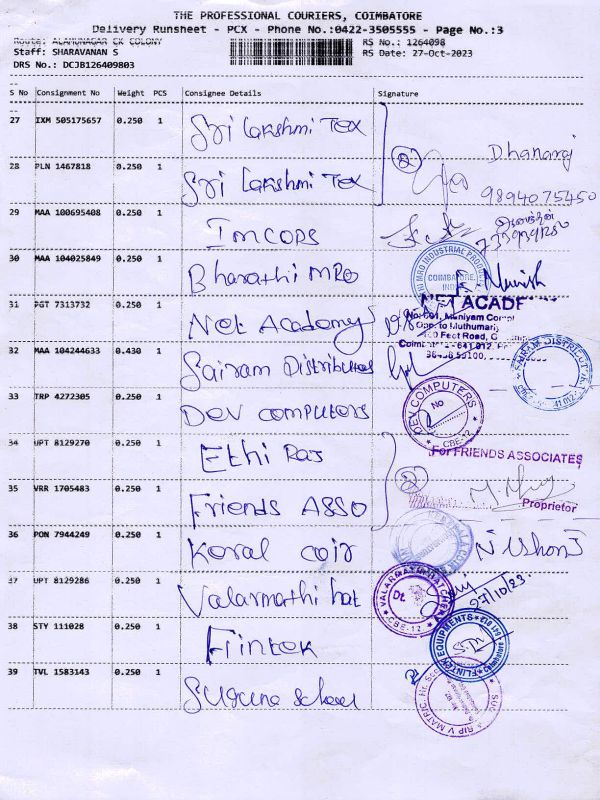 THE PROFESSIONAL COURIERS, COIMBATORE
Delivery Runsheet - PCX - Phone No.:0422-3505555 - Page No.:3
Route: ALAMUNAGAR CK COLONY RS No.: 1264098
Staff: SHARAVANAN S RS Date: 27-Oct-2023
DRS No.: DCJB126409803
S No Consignment No Weight PCS Consignee Details Signature
27 IXM 505175657 0.250 1 Sri Lakshmi Tex
Dhanaraj
28 PLN 1467818 0.250 1 Sri Lakshmi Tex
9894075450
29 MAA 100695408 0.250 1 IMCOPS
30 MAA 104025849 0.250 1 Bharathi MRO
MRO INDUSTRIAL PRODUC
COIMBATORE
31 PGT 7313732 0.250 1 Net Academy
NET ACADE
Opp. to Muthumari
32 MAA 104244633 0.430 1 Sairam Distributors
SAIRAM DISTRIBUT
33 TRP 4272305 0.250 1 Dev computers
DEV COMPUTERS
No
CBE-12
34 UPT 8129270 0.250 1 Ethi Raj
For FRIENDS ASSOCIATES
35 VRR 1705483 0.250 1 Friends ASSO
Proprietor
36 PON 7944249 0.250 1 Koral coir
37 UPT 8129286 0.250 1 Valarmathi hat
VALARMATHI HATCHERI
Dt.
CBE-12
27/10/23.
38 STY 111028 0.250 1 Flintek
FLINTEK EQUIPMENTS
39 TVL 1583143 0.250 1 Suguna School
RIP V MATRIC. Hr. Sec